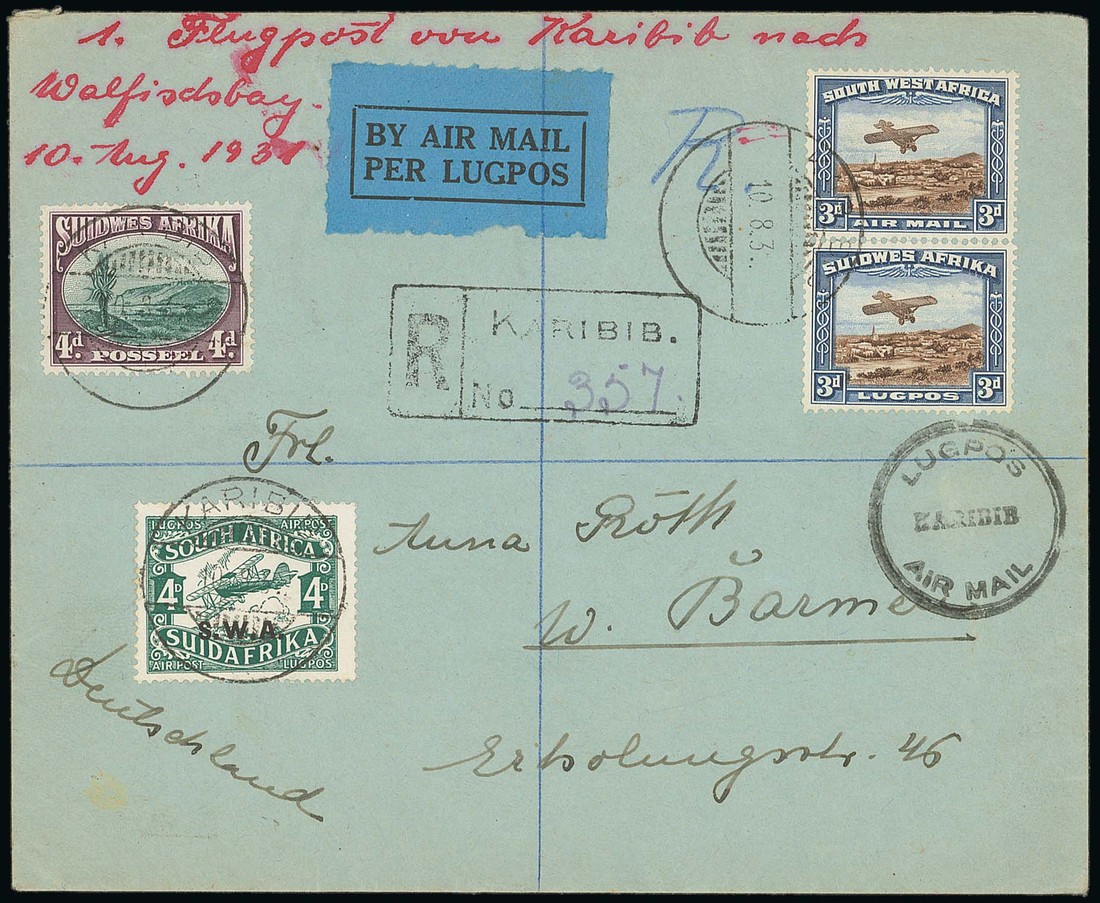 1. Flugpost von Karibib nach
Walfischbay.
10. Aug. 1931
BY AIR MAIL
PER LUGPOS
R
10.8.3
SOUTH WEST AFRICA
3d 3d
AIR MAIL
SUIDWES AFRIKA
3d 3d
LUGPOS
SUIDWES AFRIKA
4d. 4d.
POSSEEL
R
KARIBIB.
No 357.
Frl.
Anna Röth
W. Barmen
Erholungsstr. 46
Deutschland
KARIBI
LUGPOS AIR POST
SOUTH AFRICA
4D 4D
S.W.A.
SUIDAFRIKA
AIR POST LUGPOS
LUGPOS
KARIBIB
AIR MAIL